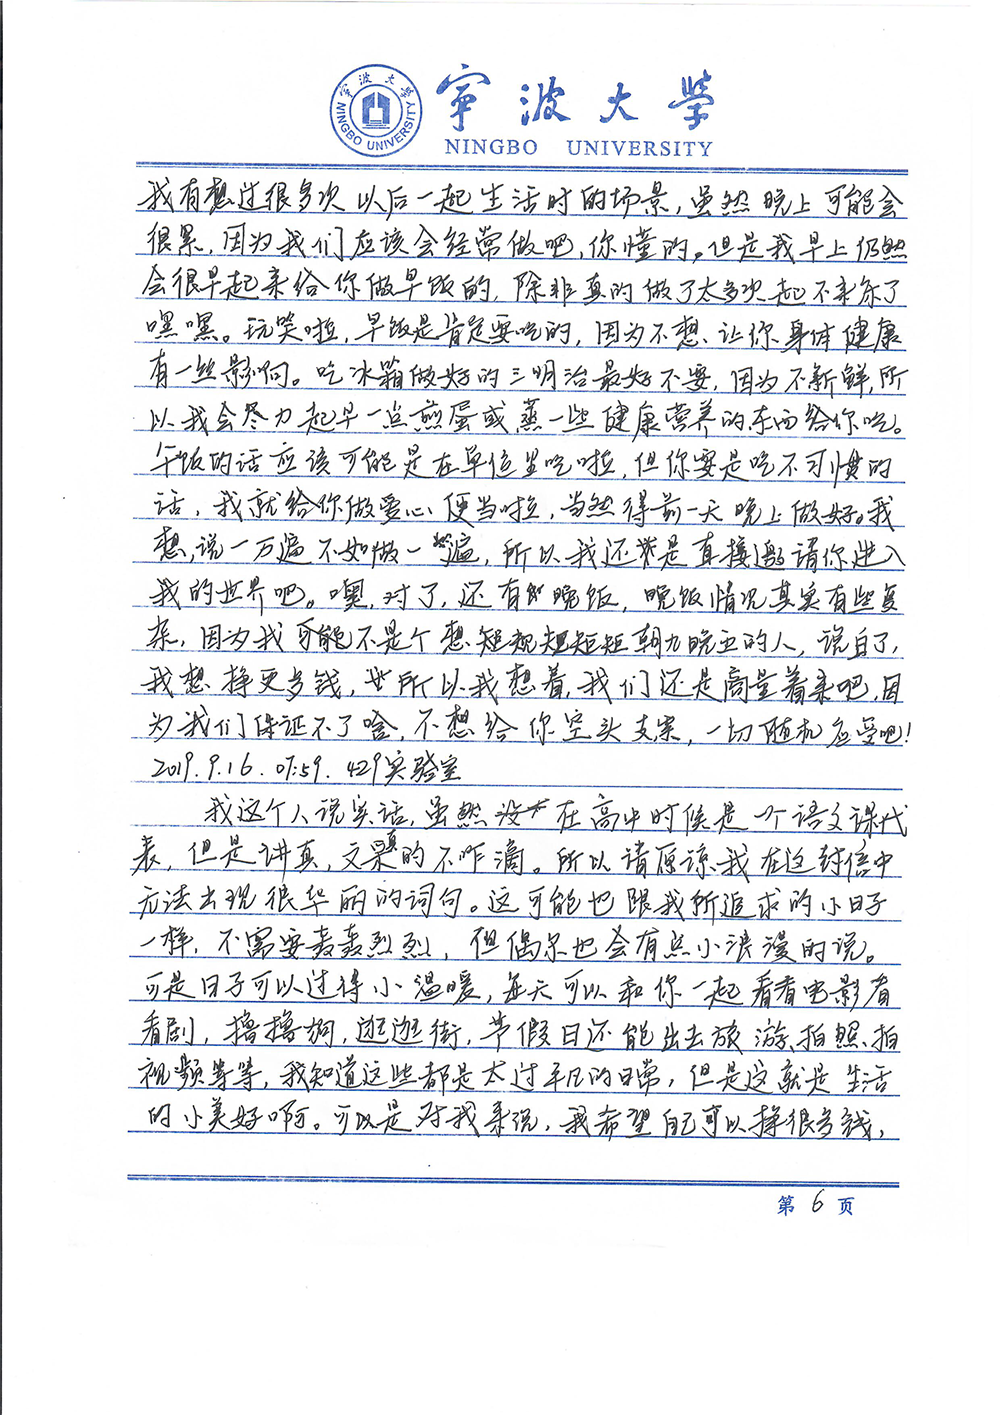 宁波大学
NINGBO UNIVERSITY
宁波大学
NINGBO UNIVERSITY
我有想过很多次以后一起生活时的场景，虽然晚上可能会
很累，因为我们应该会经常做吧，你懂的。但是我早上仍然
会很早起来给你做早饭的，除非真的做了太多次起不来除了
嘿嘿。玩笑啦，早饭是肯定要吃的，因为不想让你身体健康
有一丝影响。吃冰箱做好的三明治最好不要，因为不新鲜，所
以我会尽力起早一点煎蛋或蒸一些健康营养的东西给你吃。
午饭的话应该可能是在单位里吃啦，但你要是吃不习惯的
话，我就给你做爱心便当啦，当然得前一天晚上做好。我
想，说一万遍不如做一遍，所以我还是直接邀请你进入
我的世界吧。噢，对了，还有晚饭，晚饭情况其实有些复
杂，因为我可能不是个想短短朝九晚五的人，说白了，
我想挣更多钱，所以我想着，我们还是商量着来吧，因
为我们保证不了啥，不想给你空头支票，一切随机应变吧！
2019.9.16.07:59.429实验室
我这个人说实话，虽然在高中时候是一个语文课代
表，但是讲真，文采真的不咋滴。所以请原谅我在这封信中
无法出现很华丽的词句。这可能也跟我所追求的小日子
一样，不需要轰轰烈烈，但偶尔也会有点小浪漫的说。
可是日子可以过得小温暖，每天可以和你一起看看电影看
看剧，撸撸狗，逛逛街，节假日还能出去旅游、拍照、拍
视频等等，我知道这些都是太过平凡的日常，但是这就是生活
的小美好啊。可以是对我来说，我希望自己可以挣很多钱，
第6页